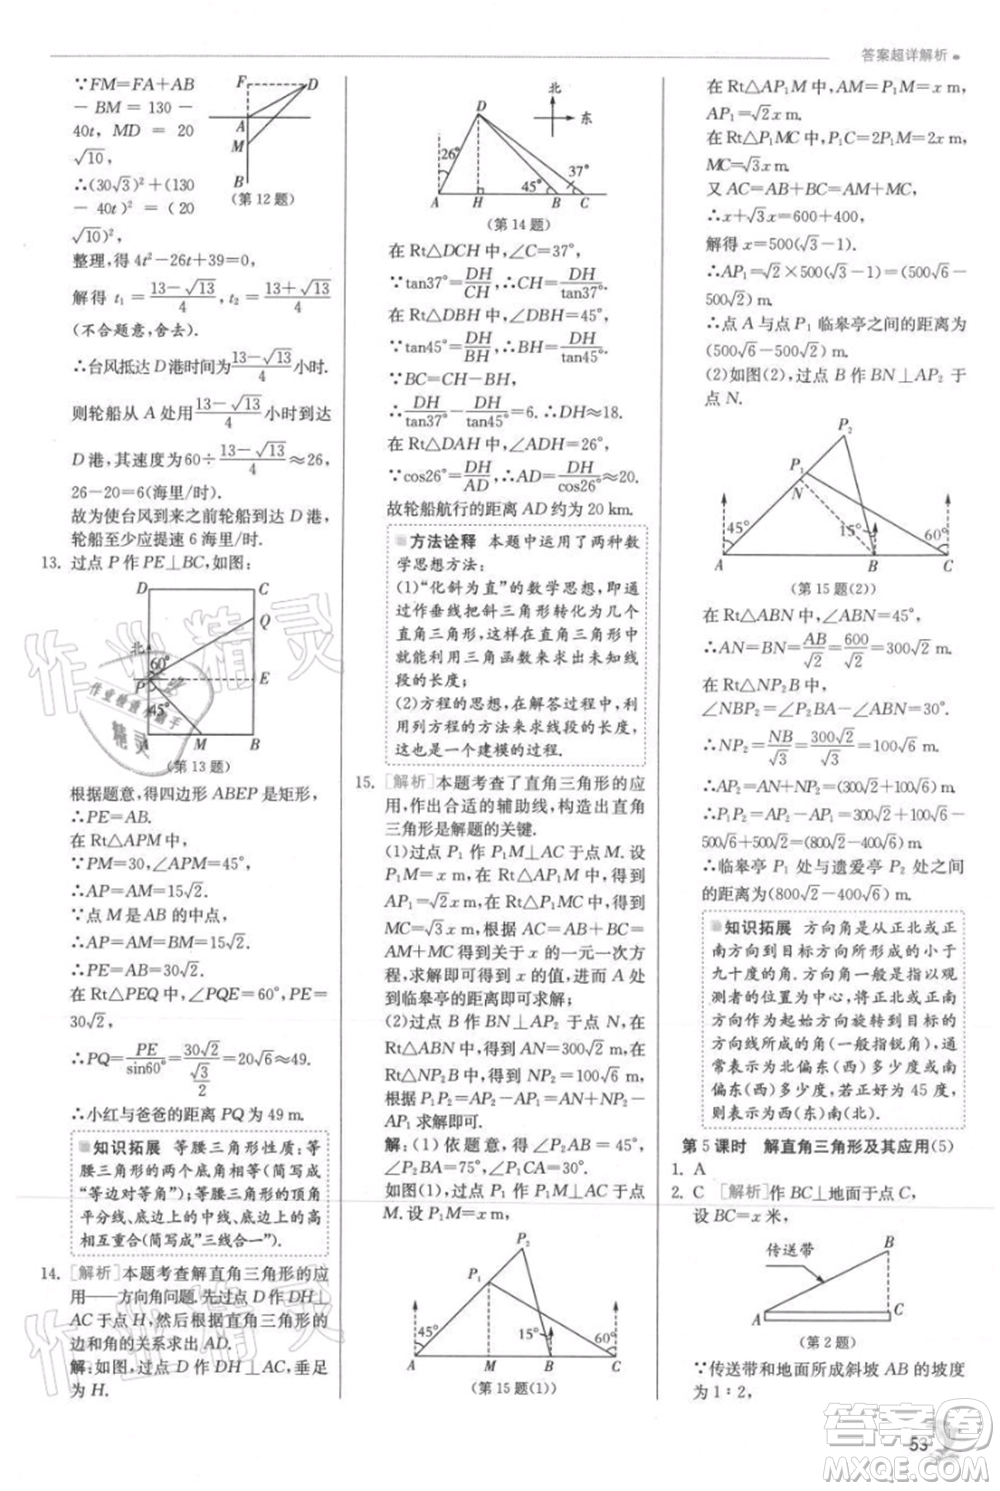 答案超详解析
∵FM=FA+AB
-BM=130-
40t, MD=20
√10,
∴(30√3)²+(130
-40t)²=(20
√10)²,
F
D
A
M
B
(第12题)
整理,得4t²-26t+39=0,
解得 t₁=(13-√13)/4, t₂=(13+√13)/4
(不合题意,舍去).
∴台风抵达D港时间为(13-√13)/4小时.
则轮船从A处用(13-√13)/4小时到达
D港,其速度为60÷(13-√13)/4≈26,
26-20=6(海里/时).
故为使台风到来之前轮船到达D港,
轮船至少应提速 6 海里/时.
13. 过点P作PE⊥BC,如图:
D C
Q
北
60°
P E
A M B
(第13题)
根据题意,得四边形ABEP是矩形,
∴PE=AB.
在Rt△APM中,
∵PM=30,∠APM=45°,
∴AP=AM=15√2.
∵点M是AB的中点,
∴AP=AM=BM=15√2.
∴PE=AB=30√2.
在Rt△PEQ中,∠PQE=60°,PE=
30√2,
∴PQ=PE/sin60°=30√2/(√3/2)=20√6≈49.
∴小红与爸爸的距离PQ为49 m.
知识拓展 等腰三角形性质:等
腰三角形的两个底角相等(简写成
“等边对等角”);等腰三角形的顶角
平分线、底边上的中线、底边上的高
相互重合(简写成“三线合一”).
14. [解析]本题考查解直角三角形的应
用——方向角问题.先过点D作DH⊥
AC于点H,然后根据直角三角形的
边和角的关系求出AD.
解:如图,过点D作DH⊥AC,垂足
为H.
D
北
东
26°
37°
45°
A H B C
(第14题)
在Rt△DCH中,∠C=37°,
∵tan37°=DH/CH,∴CH=DH/tan37°.
在Rt△DBH中,∠DBH=45°,
∵tan45°=DH/BH,∴BH=DH/tan45°.
∵BC=CH-BH,
∴DH/tan37°-DH/tan45°=6.∴DH≈18.
在Rt△DAH中,∠ADH=26°,
∵cos26°=DH/AD,∴AD=DH/cos26°≈20.
故轮船航行的距离AD约为20 km.
方法诠释 本题中运用了两种数
学思想方法:
(1)“化斜为直”的数学思想,即通
过作垂线把斜三角形转化为几个
直角三角形,这样在直角三角形中
就可以利用三角函数求出未知线段
的长度;
(2)方程的思想,在解答过程中,
利用列方程的方法求出线段的长
度,这也是一个建模的过程.
15. [解析]本题考查了直角三角形的应
用,作出合适的辅助线,构造出直角
三角形是解题的关键.
(1)过点P₁作P₁M⊥AC于点M.设
P₁M=x m,在Rt△AP₁M中得到
AP₁=√2x m,在Rt△P₁MC中得到
MC=√3x m,根据AC=AB+BC=
AM+MC得到关于x的一元一次方
程,解方程可得到x的值,进而A处
到临皋亭的距离即可求解;
(2)过点B作BN⊥AP₂于点N,在
Rt△ABN中,得到AN=300√2 m,
在Rt△NP₂B中得到NP₂=100√6 m,
根据P₁P₂=AP₂-AP₁=AN+NP₂-
AP₁求解即可.
解:(1)依题意,得∠P₂AB=45°,
∠P₂BA=75°,∠P₁CA=30°.
如图(1),过点P₁作P₁M⊥AC于点
M.设P₁M=x m,
P₂
P₁
45°
15°
60°
A M B C
(第15题(1))
在Rt△AP₁M中,AM=P₁M=x m,
AP₁=√2x m.
在Rt△P₁MC中,P₁C=2P₁M=2x m,
MC=√3x m.
又AC=AB+BC=AM+MC,
∴x+√3x=600+400,
解得x=500(√3-1).
∴AP₁=√2×500(√3-1)=(500√6-
500√2)m.
∴点A与点P₁临皋亭之间的距离为
(500√6-500√2)m.
(2)如图(2),过点B作BN⊥AP₂于
点N.
P₂
P₁
N
45°
15°
60°
A B C
(第15题(2))
在Rt△ABN中,∠ABN=45°,
∴AN=BN=AB/√2=600/√2=300√2 m.
在Rt△NP₂B中,
∠NBP₂=90°-45°-15°=30°,
∴NP₂=NB/√3=300√2/√3=100√6 m.
∴AP₂=AN+NP₂=(300√2+100√6)m.
∴P₁P₂=AP₂-AP₁=300√2+100√6-
500√6+500√2=(800√2-400√6)m.
∴临皋亭P₁处与遗爱亭P₂处之间
的距离为(800√2-400√6)m.
知识拓展 方向角是从正北或正
南方向到目标方向所形成的小于
九十度的角.方向角一般是指以观
测者的位置为中心,将正北或正南
方向作为起始方向旋转到目标的
方向线所成的角(一般指锐角),
通常表达成北(南)偏东(西)多少
度.北偏东(西)多少度,或者南
偏东(西)多少度,若正好为45度,
则表示为西(东)南(北).
第5课时 解直角三角形及其应用(5)
1. A
2. C [解析]作BC⊥地面于点C,
设BC=x米,
传送带
B
A
C
(第2题)
∵传送带和地面所成斜坡AB的坡度
为1:2,
53
作业精灵
作业精灵
作业检查小助手
精灵
答案圈
MXQE.COM